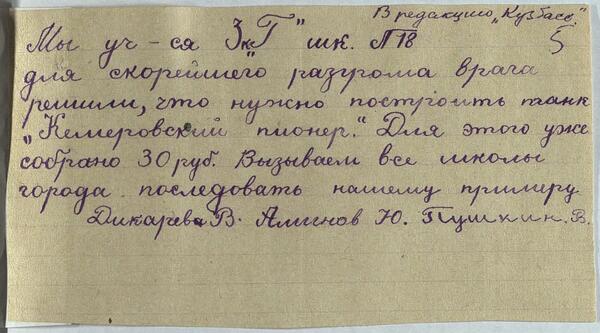 В редакцию „Кузбасс".
5
Мы уч-ся 3 кл „Г" шк. №18
для скорейшего разгрома врага
решили, что нужно построить танк
„Кемеровский пионер." Для этого уже
собрано 30 руб. Вызываем все школы
города последовать нашему примеру
Дикарева В. Аминов Ю. Пушкин. В.